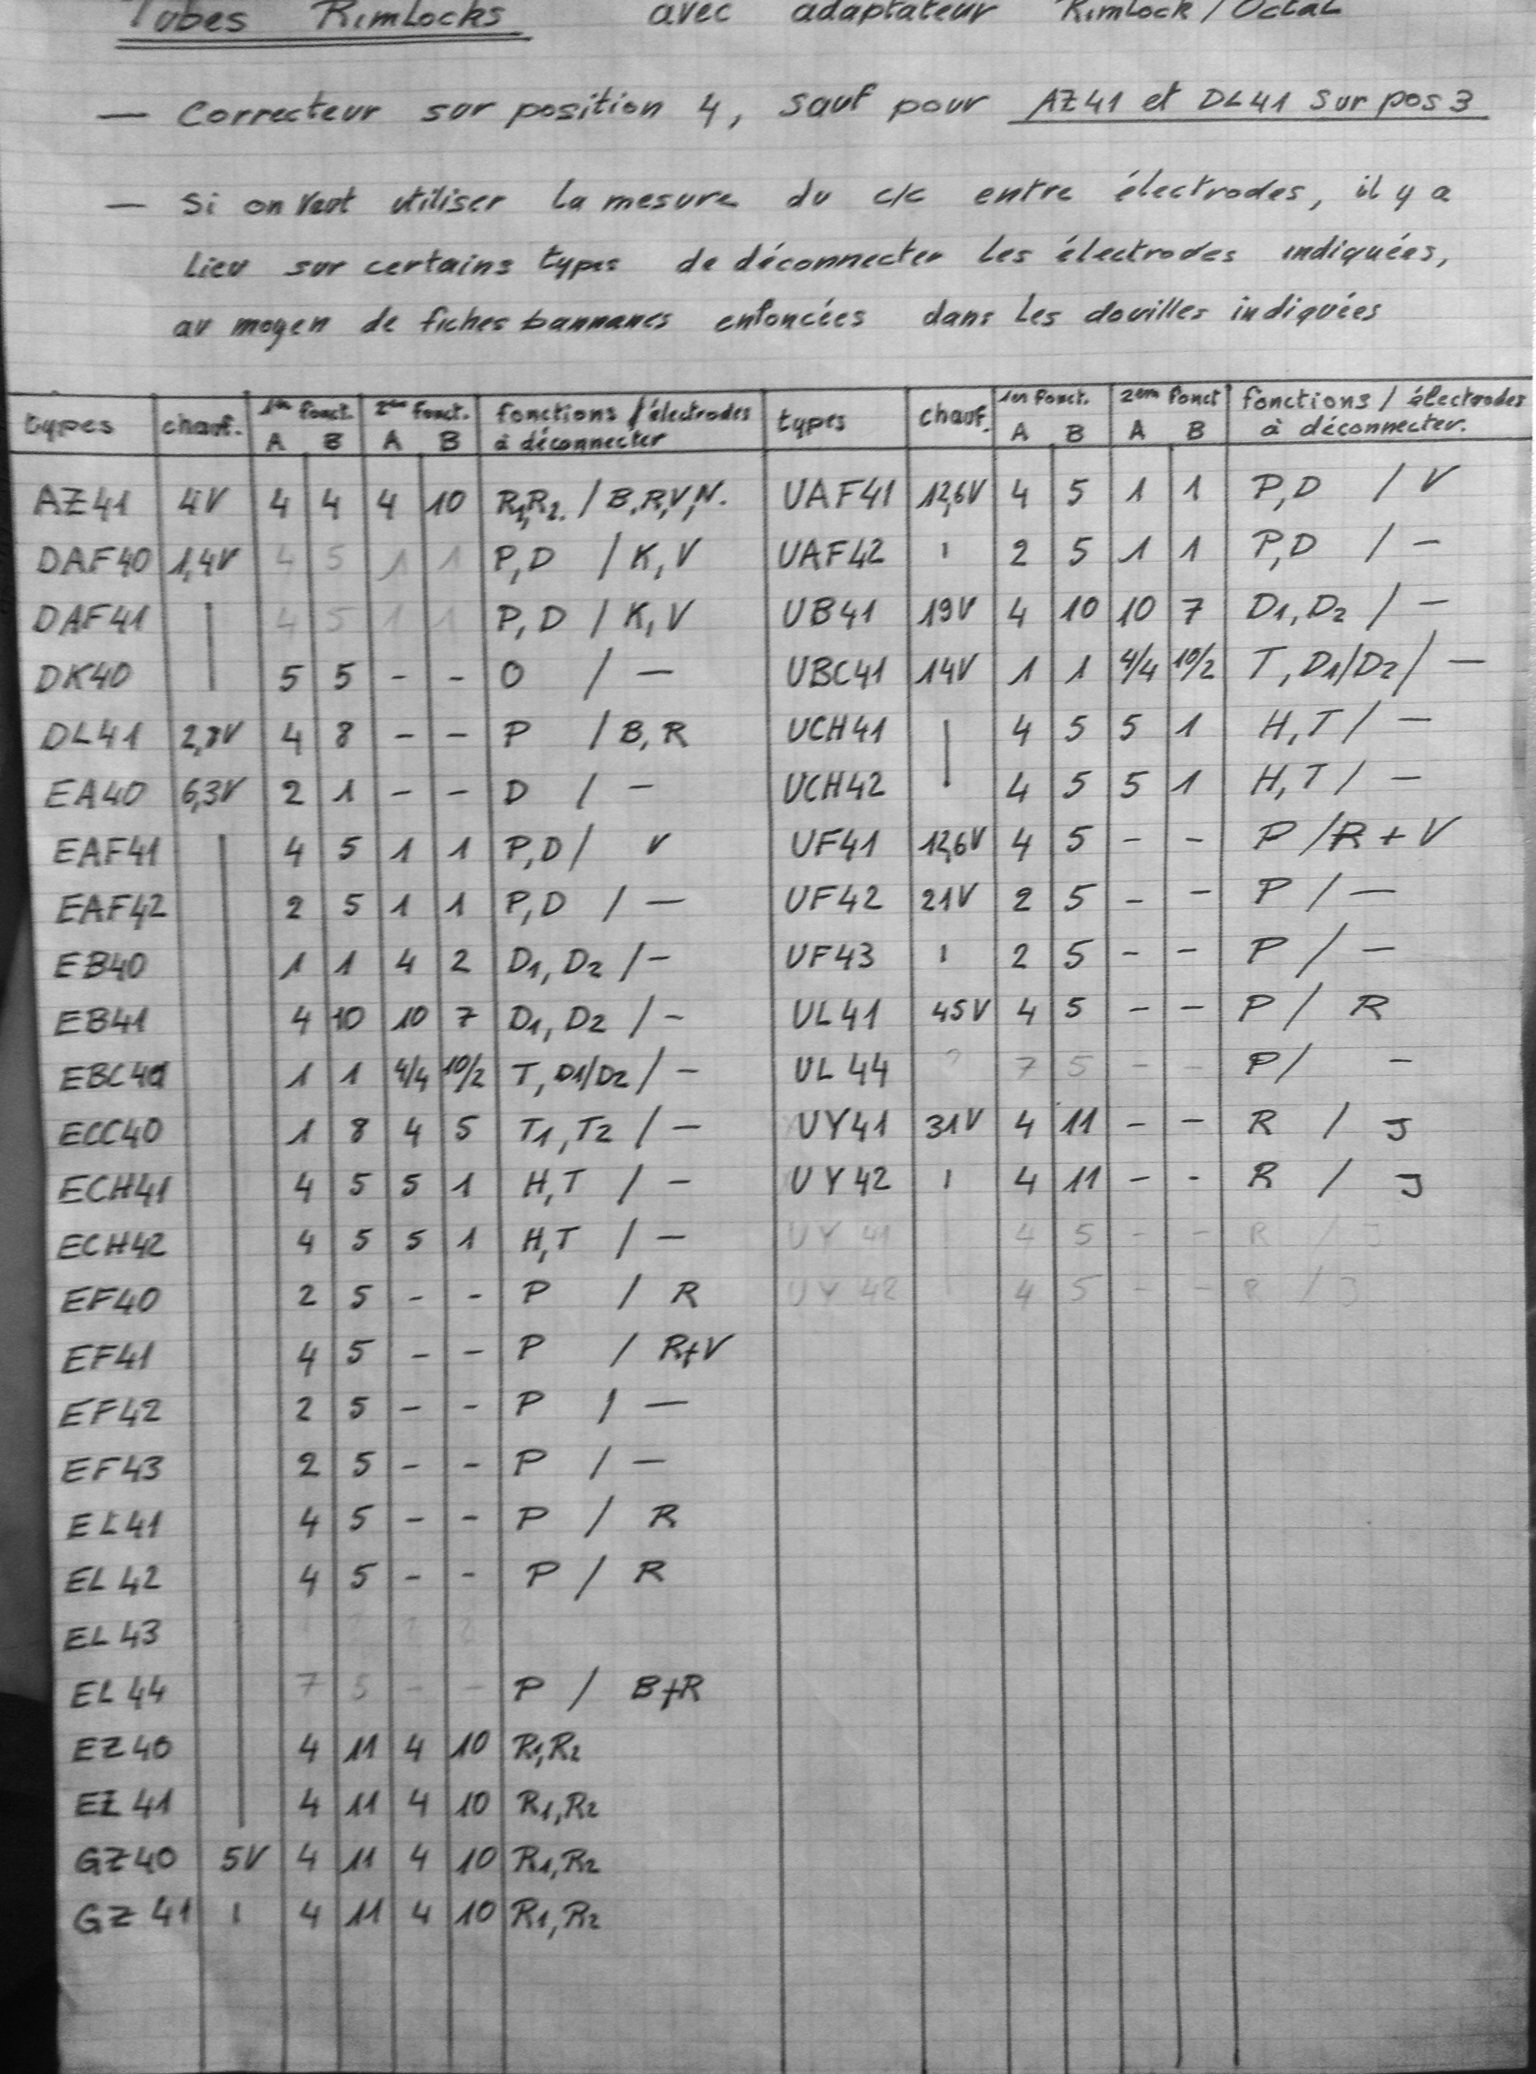 Tubes Rimlocks avec adaptateur Rimlock/Octal
— Correcteur sur position 4, sauf pour AZ41 et DL41 sur pos 3
— Si on veut utiliser la mesure du c/c entre électrodes, il y a
lieu sur certains types de déconnecter les électrodes indiquées,
au moyen de fiches bannanes enfoncées dans les douilles indiquées
types chauf. 1ère fonct. A B 2ème fonct. A B fonctions / électrodes à déconnecter
AZ41 4V 4 4 4 10 R1,R2. / B,R,V,N.
DAF40 1,4V 4 5 1 1 P,D / K,V
DAF41 | 4 5 1 1 P,D / K,V
DK40 | 5 5 - - O / —
DL41 2,8V 4 8 - - P / B,R
EA40 6,3V 2 1 - - D / —
EAF41 | 4 5 1 1 P,D / V
EAF42 2 5 1 1 P,D / —
EB40 1 1 4 2 D1,D2 / -
EB41 4 10 10 7 D1,D2 / -
EBC41 1 1 4/4 10/2 T,D1/D2 / -
ECC40 1 8 4 5 T1,T2 / —
ECH41 4 5 5 1 H,T / -
ECH42 4 5 5 1 H,T / —
EF40 2 5 - - P / R
EF41 4 5 - - P / R+V
EF42 2 5 - - P / —
EF43 2 5 - - P / —
EL41 4 5 - - P / R
EL42 4 5 - - P / R
EL43
EL44 7 5 - - P / B+R
EZ40 4 11 4 10 R1,R2
EZ41 4 11 4 10 R1,R2
GZ40 5V 4 11 4 10 R1,R2
GZ41 | 4 11 4 10 R1,R2
types chauf. 1ère fonct. A B 2ème fonct A B fonctions / électrodes à déconnecter.
UAF41 12,6V 4 5 1 1 P,D / V
UAF42 | 2 5 1 1 P,D / —
UB41 19V 4 10 10 7 D1,D2 / —
UBC41 14V 1 1 4/4 10/2 T,D1/D2 / —
UCH41 | 4 5 5 1 H,T / —
UCH42 4 5 5 1 H,T / —
UF41 12,6V 4 5 - - P / R + V
UF42 21V 2 5 - - P / —
UF43 | 2 5 - - P / —
UL41 45V 4 5 - - P / R
UL44 ? 7 5 - - P / -
UY41 31V 4 11 - - R / J
UY42 | 4 11 - - R / J
UY 41 4 5 - - R / J
UY 42 4 5 - - R / J